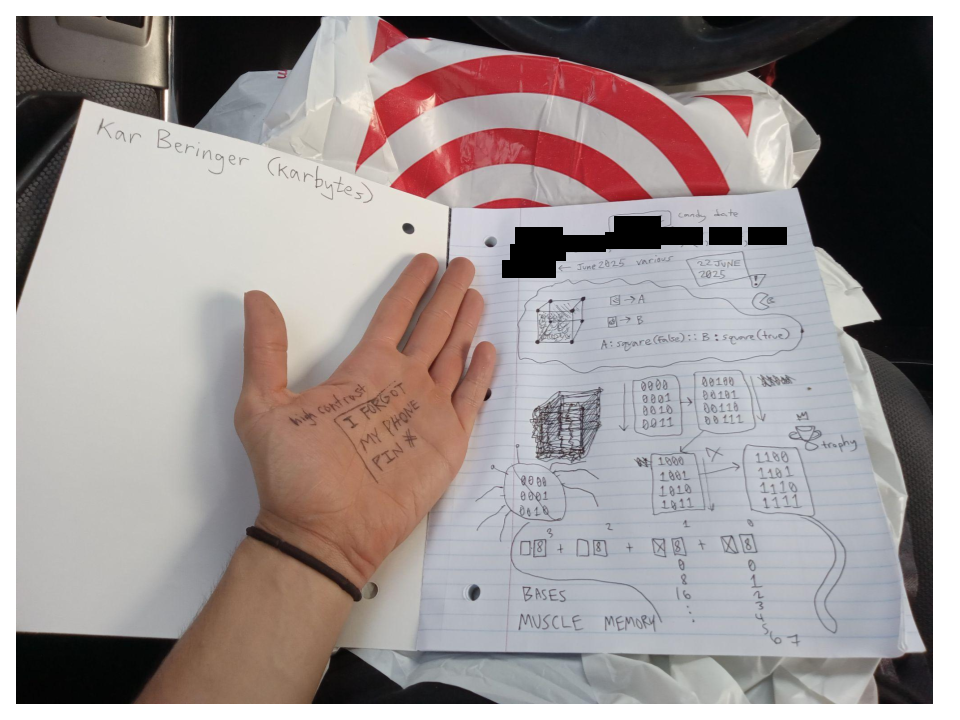 Kar Beringer (karbytes)
high contrast
I FORGOT
MY PHONE
PIN #
candy date
← June 2025 various
22 JUNE
2025
!
→ A
→ B
A: square(false) :: B: square(true)
0000
0001
0010
0011
00100
00101
00110
00111
trophy
1000
1001
1010
1011
1100
1101
1110
1111
0000
0001
0010
3 2 1 0
8 + 8 + 8 + 8
0 0
8 1
16 2
: 3
. 4
5
6 7
BASES
MUSCLE MEMORY